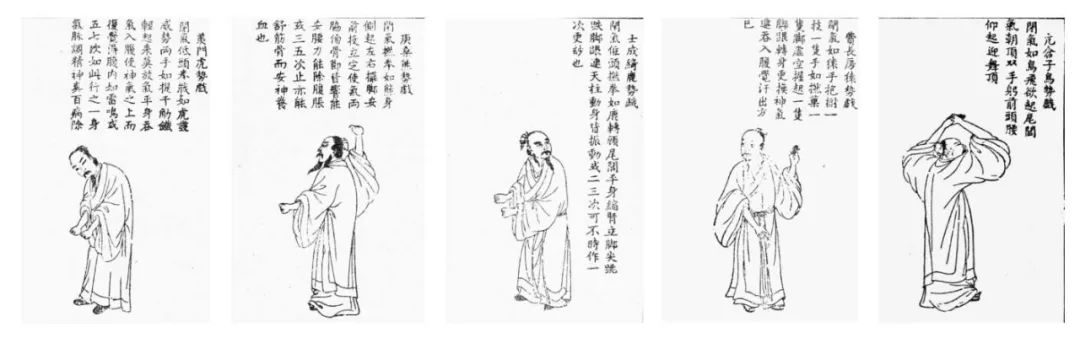 羨門虎勢戲
閉氣低頭拳戰如虎發
威勢兩手如提千觔鐵
輕起來莫放氣平身吞
氣入腹使神氣之上而
復覺得腹內如雷鳴或
五七次如此行之一身
氣脉調精神爽百病除
庚桑熊勢戲
閉氣撚拳如熊身
側起左右擺脚安
前投立定使氣兩
脇傍骨節皆響能
安腰力能除腹脹
或三五次止亦能
舒筋骨而安神養
血也
士成綺鹿勢戲
閉氣低頭撚拳如鹿轉頭尾閭平身縮臂立脚尖跳
跌脚跟連天柱動身皆振動或二三次可不時作一
次更妙也
費長房猿勢戲
閉氣如猿手抱樹一
枝一隻手如撚菓一
隻脚虛空握起一隻
脚跟轉身更換神氣
連吞入腹覺汗出方
已
亢倉子鳥勢戲
閉氣如鳥飛欲起尾閭
氣朝頂双手躬前頭腰
仰起迎舞頂